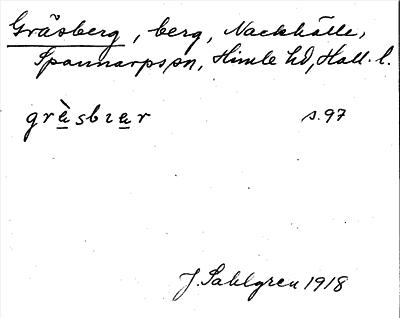 Gräsberg, berg, Nackhälle,
Spannarps sn, Himle hd, Hall. l.
grè̱sbɪa̱r s. 97
J. Sahlgren 1918